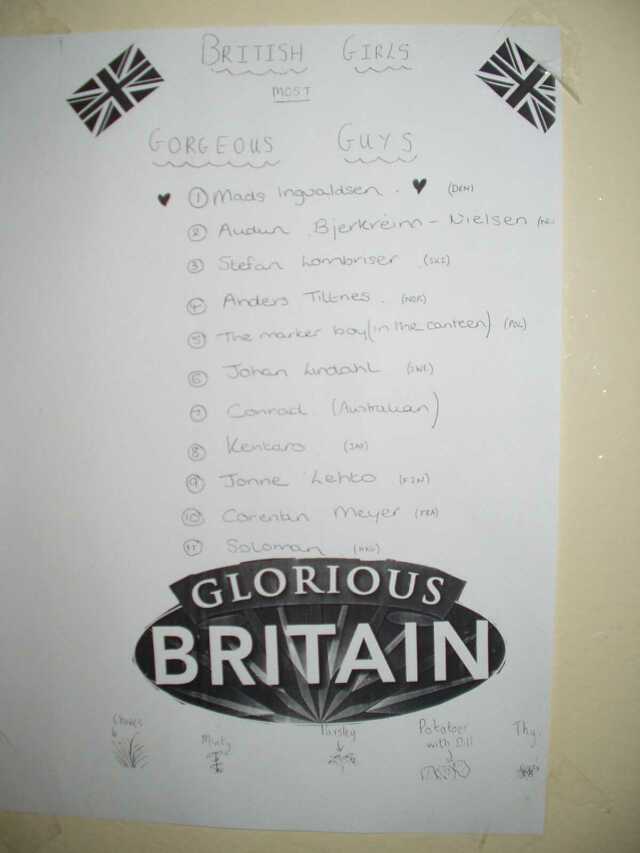 BRITISH GIRLS
MOST
GORGEOUS GUYS
1 Mads Ingvaldsen. (DEN)
2 Audun Bjerkreim-Nielsen
3 Stefan Lombriser (SUI)
4 Anders Tiltnes. (NOR)
5 The marker boy (in the canteen) (POL)
6 Johan Lindahl (SWE)
7 Conrad (Australian)
8 Kentaro (JAP)
9 Jonne Lehto (FIN)
10 Corentin Meyer (FRA)
11 Soloman (HKG)
GLORIOUS
BRITAIN
Chives Minty Parsley Potatoes Thy.
with Dill